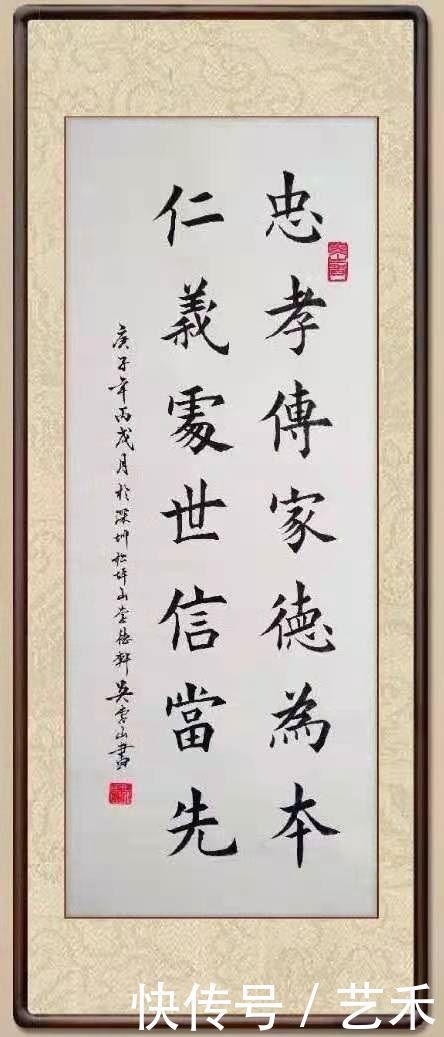 忠孝傳家德為本
仁義處世信當先
庚子年丙戌月於深圳松坪山德軒吴山書
快传号 / 艺禾